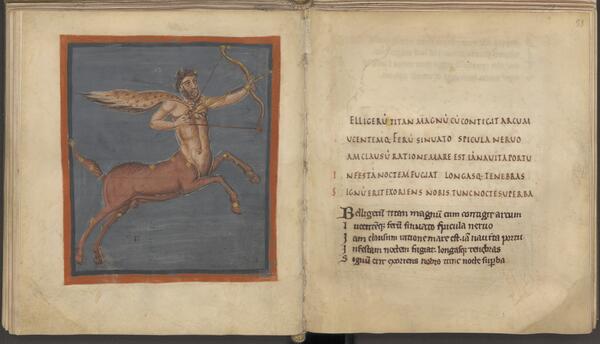 ELLIGERŪ TITAN MAGNŪ CŪ CONTIGIT ARCUM
UCENTEMQ; FERŪ SINUATO SPICULA NERUO
AM CLAUSŪ RATIONE MARE EST IĀ NAUITA PORTU
I NFESTĀ NOCTEM FUGIAT LONGASQ; TENEBRAS
S IGNŪ ERIT EXORIENS NOBIS TUNC NOCTE SUPERBA
Belligerū titan magnū cum contigit arcum
I ucentēq; ferū sinuato spicula neruo
I am clausum ratione mare est. iā nauita portu
I nfestam noctem fugiat. longasq; tenebras
S ignū erit exoriens nobis tunc nocte suꝑba